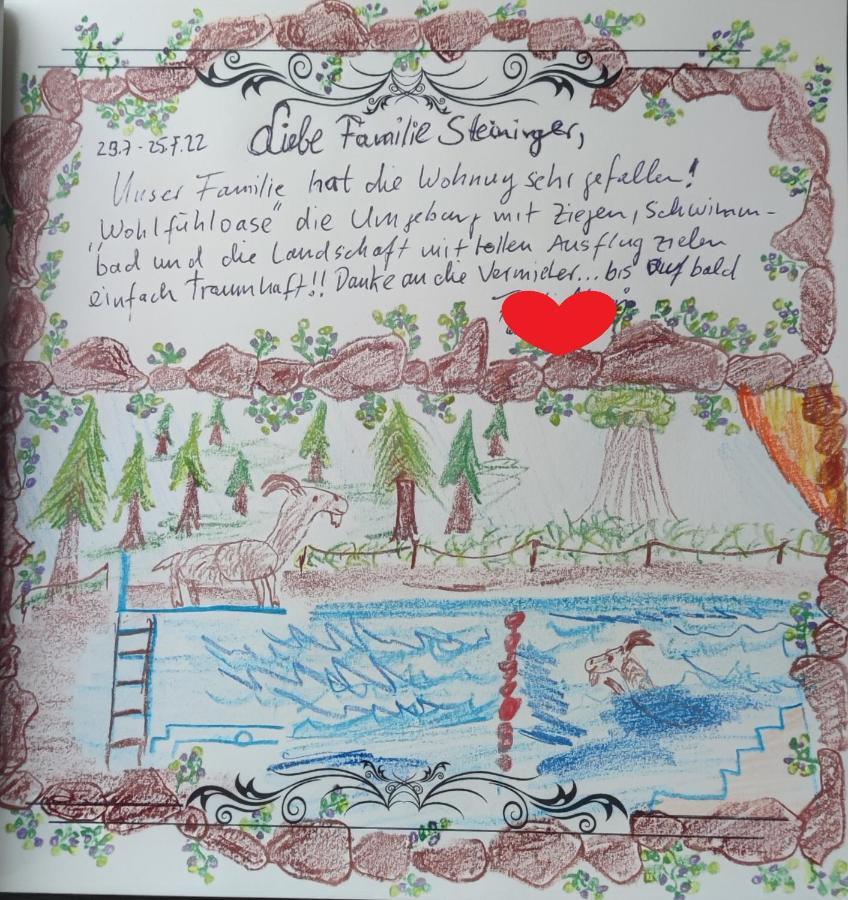 29.7 - 25.7.22 Liebe Familie Steininger,
Unser Familie hat die Wohnung sehr gefallen!
"Wohlfühloase" die Umgebung mit Ziegen, Schwimm-
bad und die Landschaft mit tollen Ausflug zielen
einfach Traumhaft!! Danke an die Vermieter... bis auf bald